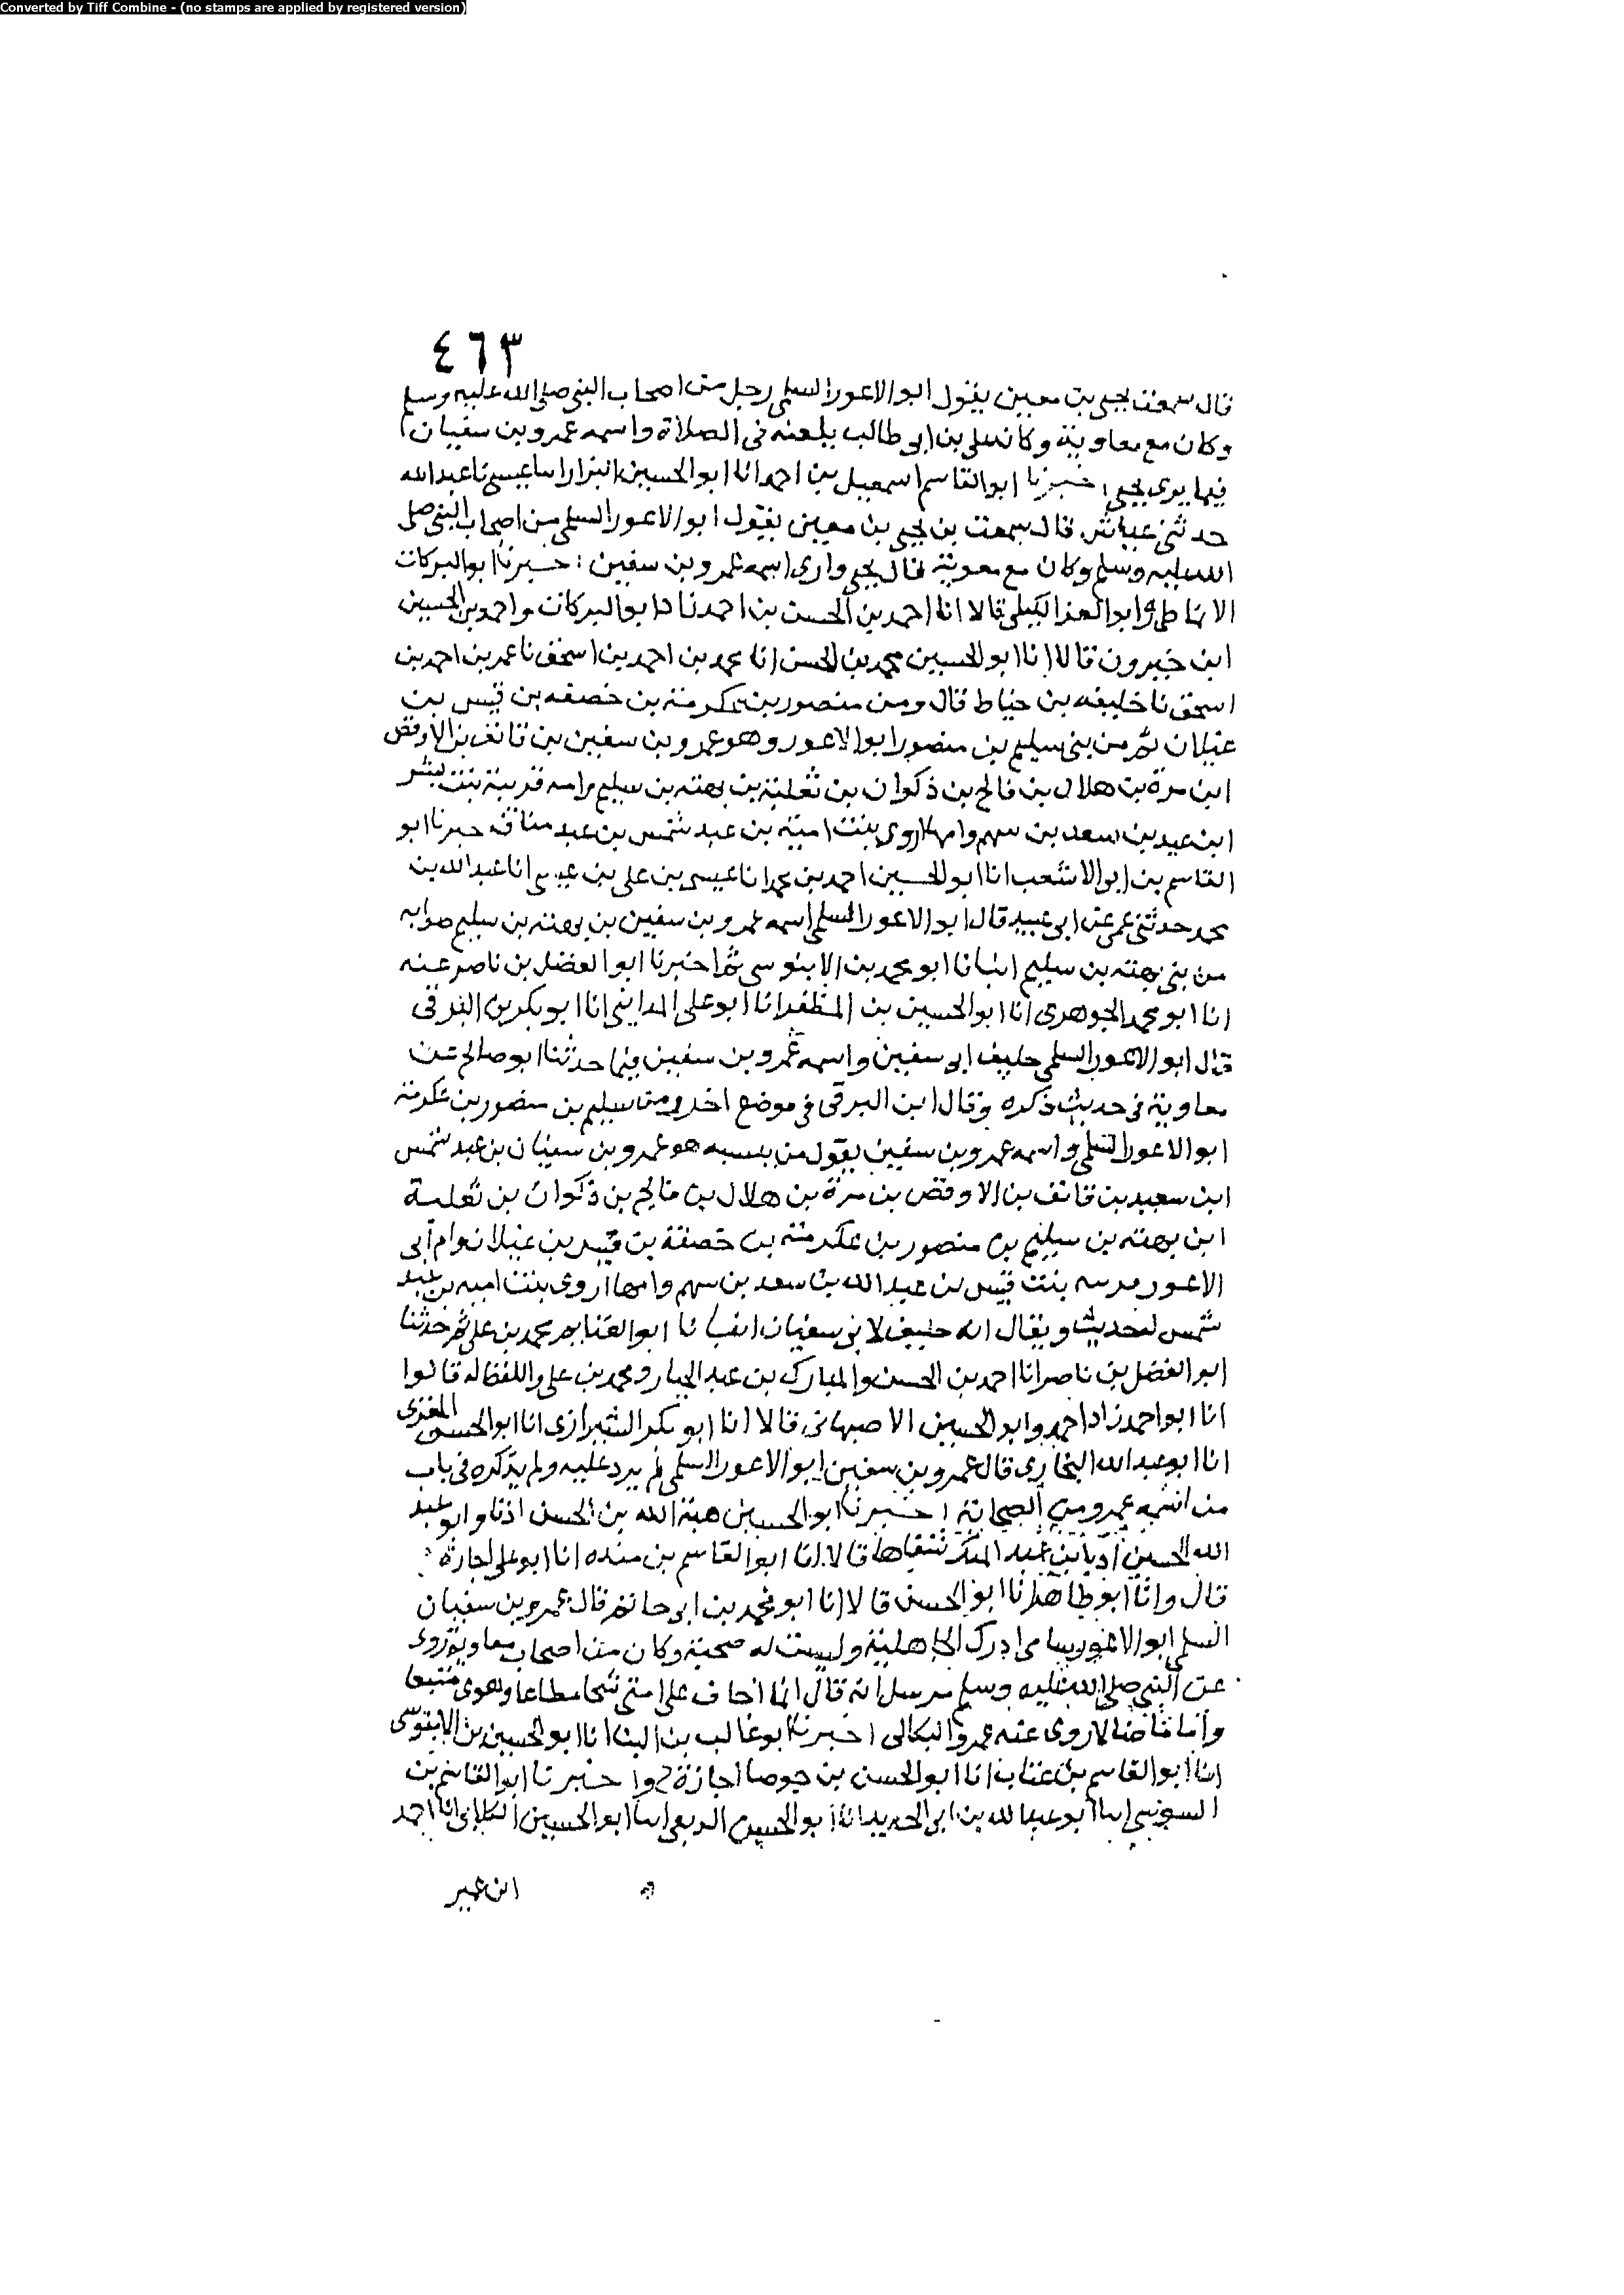 Converted by Tiff Combine - (no stamps are applied by registered version)
٤٦٣
قال سمعت يحيى بن معين يقول ابو الاعور السلمي رجل من اصحاب النبي صلى الله عليه وسلم
وكان مع معاوية وكان علي بن ابي طالب يلعنه في الصلاة واسمه عمرو بن سفيان
فيما يرى يحيى اخبرنا ابو القاسم اسمعيل بن احمد انا ابو الحسين البزار انا عيسى نا عبد الله
حدثني عباس قال سمعت بن يحيى بن معين يقول ابو الاعور السلمي من اصحاب النبي صلى
الله عليه وسلم وكان مع معوية قال يحيى وارى اسمه عمرو بن سفين اخبرنا ابو البركات
الانماطي وابو العز الكيلي قالا انا احمد بن الحسن بن احمد زاد ابو البركات واحمد بن الحسين
ابن خيرون قالا انا ابو الحسين محمد بن الحسن انا محمد بن احمد بن اسحق نا عمر بن احمد بن
اسحق نا خليفه بن خياط قال ومن منصور بن عكرمة بن خصفه بن قيس بن
عيلان ثم من بني سليم بن منصور ابو الاعور وهو عمرو بن سفين بن قانف بن الاوقص
ابن مرة بن هلال بن فالح بن ذكوان بن ثعلبة بن بهته بن سليم امه قريبة بنت بشر
ابن عبد بن سعد بن سهم وامها اروى بنت امية بن عبد شمس بن عبد مناف اخبرنا ابو
القاسم بن ابو الاشعب انا ابو الحسين احمد بن محمد انا عيسى بن علي بن عيسى انا عبد الله بن
محمد حدثني عمي عن ابي عبيد قال ابو الاعور السلمي اسمه عمرو بن سفين بن بهته بن سليم صوابه
من بني بهته بن سليم انبانا ابو محمد بن الابنوسي ثم اخبرنا ابو الفضل بن ناصر عنه
انا ابو محمد الجوهري انا ابو الحسين بن المظفر انا ابو علي المدايني انا ابو بكر بن البرقي
قال ابو الاعور السلمي حليف ابي سفين واسمه عمرو بن سفين فيما حدثنا ابو صالح عن
معاوية في حديث ذكره وقال ابن البرقي في موضع اخر ومن سليم بن منصور بن عكرمة
ابو الاعور السلمي واسمه عمرو بن سفين يقول من ينسبه هو عمرو بن سفيان بن عبد شمس
ابن سعيد بن قانف بن الاوقص بن مرة بن هلال بن فالح بن ذكوان بن ثعلبة
ابن بهته بن سليم بن منصور بن عكرمة بن خصفة بن قيس بن عيلان وام ابي
الاعور بنت قيس بن عبد الله بن سعد بن سهم وامها اروى بنت اميه بن عبد
شمس له حديث ويقال انه حليف لابي سفيان انبانا ابو الغنايم محمد بن علي ثم حدثنا
ابو الفضل بن ناصر انا احمد بن الحسن والمبارك بن عبد الجبار ومحمد بن علي واللفظ له قالوا
انا ابو احمد زاد احمد وابو الحسين الاصبهاني قالا انا ابو بكر الشيرازي انا ابو الحسن المقري
انا ابو عبد الله البخاري قال عمرو بن سفين ابو الاعور السلمي لم يزد عليه ولم يذكره في باب
من اسمه عمرو من الصحابة اخبرنا ابو الحسين هبة الله بن الحسن اذنا وابو عبد
الله الحسين بن عبد الملك شفاها قالا انا ابو القاسم بن منده انا ابو علي اجازة
قال وانا ابو طاهر انا ابو الحسن قالا انا ابو محمد بن ابي حاتم قال عمرو بن سفيان
السلمي ابو الاعور شامي ادرك الجاهلية وليست له صحبة وكان من اصحاب معاوية روى
عن النبي صلى الله عليه وسلم مرسل انه قال انما اخاف على امتي شحا مطاعا وهوى متبعا
واماما ضالا روى عنه عمرو البكالي اخبرنا ابو غالب بن البنا انا ابو الحسين بن الابنوسي
انا ابو القاسم بن عتاب انا ابو الحسن بن جوصا اجازة ح واخبرنا ابو القاسم بن
السوسي انا ابو عبد الله بن ابي الحديد انا ابو الحسين الربعي انا ابو الحسين الكلابي انا احمد
ابن عمير